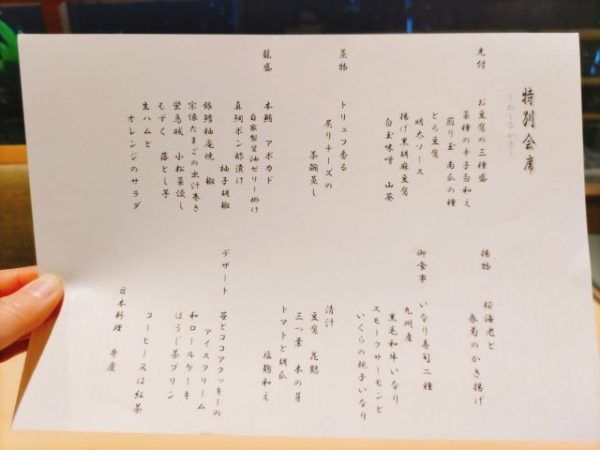 特別会席
~おしながき~
先付
お豆腐の三種盛
菜種の辛子白和え
煎り玉 南瓜の種
とろ豆腐
明太ソース
揚げ黒胡麻豆腐
白玉味噌 山葵
蒸物
トリュフ香る
炙りチーズの
茶碗蒸し
籠盛
本鮪 アボカド
自家製醤油ゼリー掛け
真鯛ポン酢漬け
柚子胡椒
銀鱈柚庵焼 椒
宗像たまごの出汁巻き
蛍烏賊 小松菜浸し
もずく 落とし芋
生ハムと
オレンジのサラダ
揚物
桜海老と
春菊のかき揚げ
御食事
いなり寿司二種
九州産
黒毛和牛いなり
スモークサーモンと
いくらの親子いなり
清汁
豆腐 花麩
三つ葉 木の芽
トマトと胡瓜
塩麹和え
デザート
苺とココアクッキーの
アイスクリーム
和ロールケーキ
ほうじ茶プリン
コーヒー又は紅茶
日本料理 弁慶